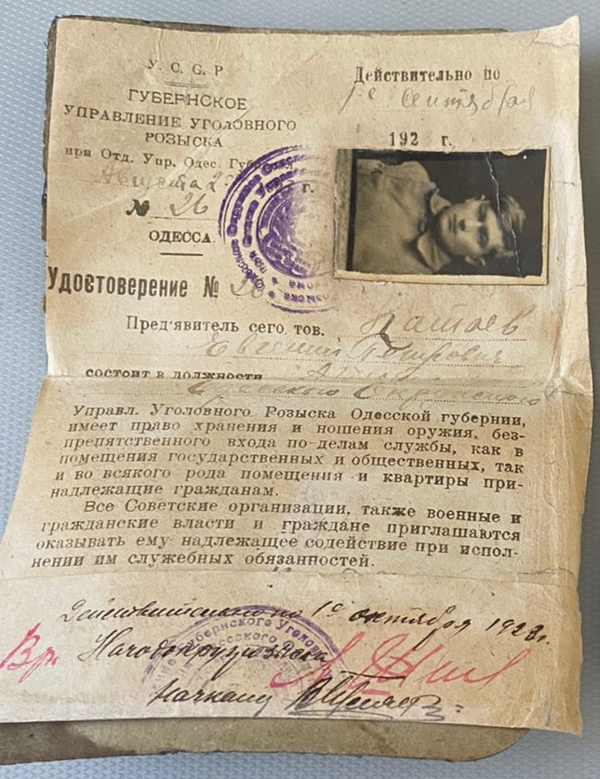 У. С. С. Р
ГУБЕРНСКОЕ
УПРАВЛЕНИЕ УГОЛОВНОГО
РОЗЫСКА
при Отд. Упр. Одес. Губ
Августа 2
г.
№ 26
ОДЕССА.
Действительно по
1е сентября
192 г.
Удостоверение №
Пред'явитель сего тов.
Евгений Петрович
состоит в должности
Управл. Уголовного Розыска Одесской губернии,
имеет право хранения и ношения оружия, без-
препятственного входа по делам службы, как в
помещения государственных и общественных, так
и во всякого рода помещения и квартиры при-
надлежащие гражданам.
Все Советские организации, также военные и
гражданские власти и граждане приглашаются
оказывать ему надлежащее содействие при испол-
нении им служебных обязанностей.
Действительно по 1е октября 1923 г.
Вр.